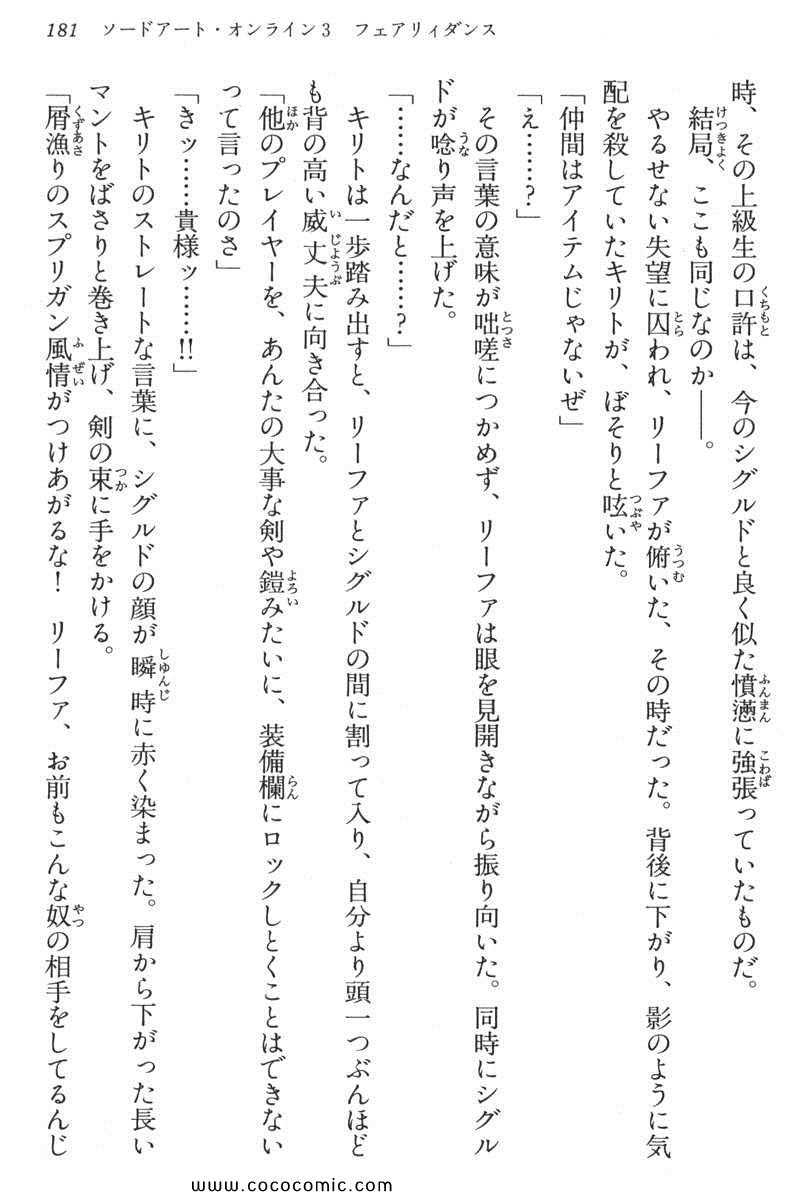 181 ソードアート・オンライン3 フェアリィダンス
時、その上級生の口許は、今のシグルドと良く似た憤懣に強張っていたものだ。
結局、ここも同じなのか――。
やるせない失望に囚われ、リーファが俯いた、その時だった。背後に下がり、影のように気
配を殺していたキリトが、ぼそりと呟いた。
「仲間はアイテムじゃないぜ」
「え……?」
その言葉の意味が咄嗟につかめず、リーファは眼を見開きながら振り向いた。同時にシグル
ドが唸り声を上げた。
「……なんだと……?」
キリトは一歩踏み出すと、リーファとシグルドの間に割って入り、自分より頭一つぶんほど
も背の高い威丈夫に向き合った。
「他のプレイヤーを、あんたの大事な剣や鎧みたいに、装備欄にロックしとくことはできない
って言ったのさ」
「きッ……貴様ッ……!!」
キリトのストレートな言葉に、シグルドの顔が瞬時に赤く染まった。肩から下がった長い
マントをばさりと巻き上げ、剣の束に手をかける。
「屑漁りのスプリガン風情がつけあがるな! リーファ、お前もこんな奴の相手をしてるんじ
www.cococomic.com